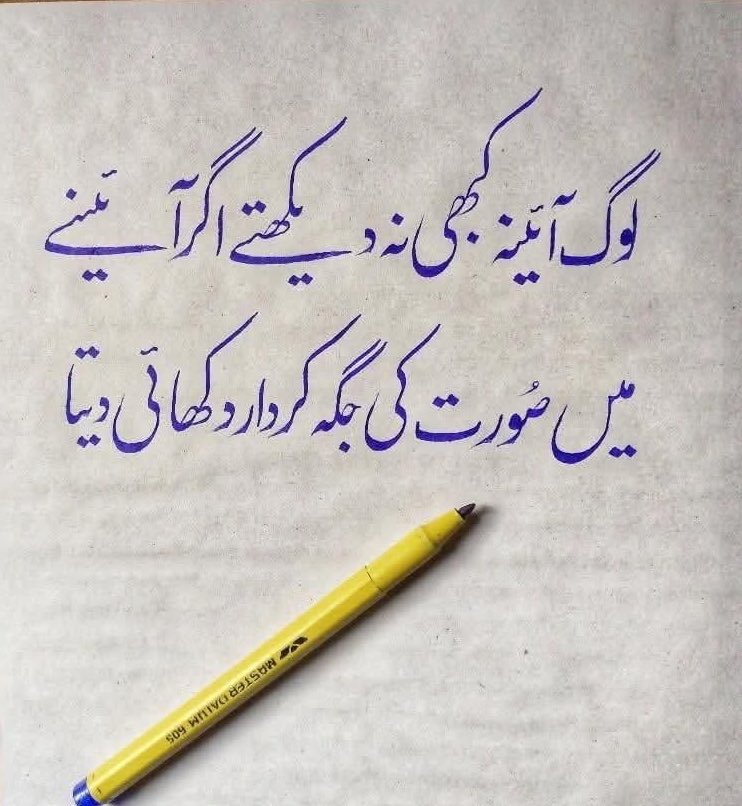 لوگ آئینہ کبھی نہ دیکھتے اگر آئینے
میں صُورت کی جگہ کردار دکھائی دیتا
MASTER QALUM 605